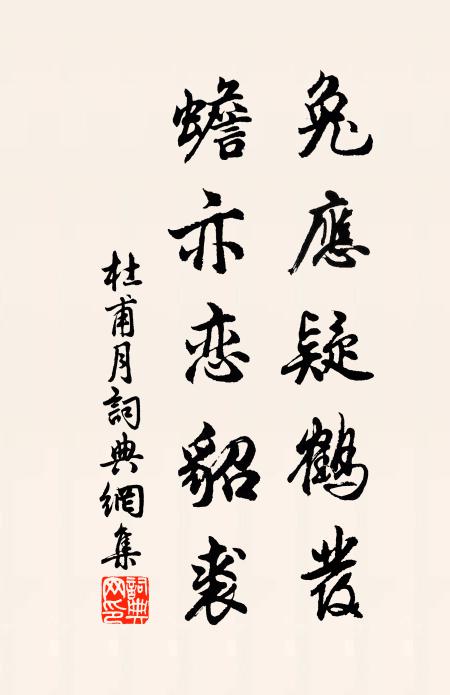 兔應疑鶴發
蟾亦恋貂裘
杜甫月詞典網集
詞典网印